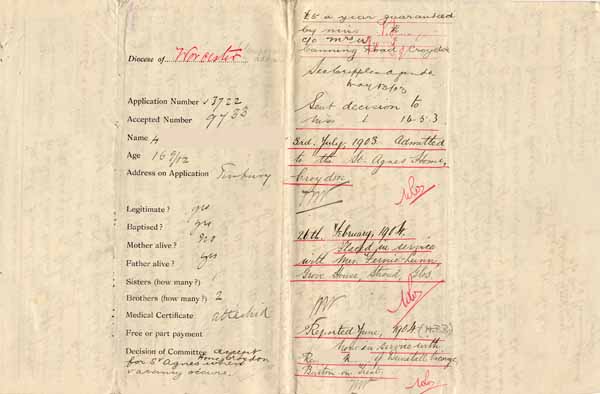 Diocese of Worcester
Application Number 13722
Accepted Number 9733
Name 4
Age 16 9/12
Address on Application Tenbury
Legitimate? yes
Baptised? yes
Mother alive? no
Father alive? yes
Sisters (how many?) 1
Brothers (how many?) 2
Medical Certificate attached
Free or part payment
Decision of Committee accept
for St Agnes Home Croydon when
vacancy occurs.
£5 a year guaranteed
by miss
c/o Mrs
Canning Road, Croydon
See Cripples agenda
May
Sent decision to
Miss 16.5.3
3rd. July, 1903. Admitted
to the St. Agnes Home,
Croydon
26th. February, 1904.
Placed in service
with Mrs. Fernie-Lunn,
Grove House, Stroud, Glos
Reported June, 1904
now in service with
Re R of Tunstall
Burton on Trent.